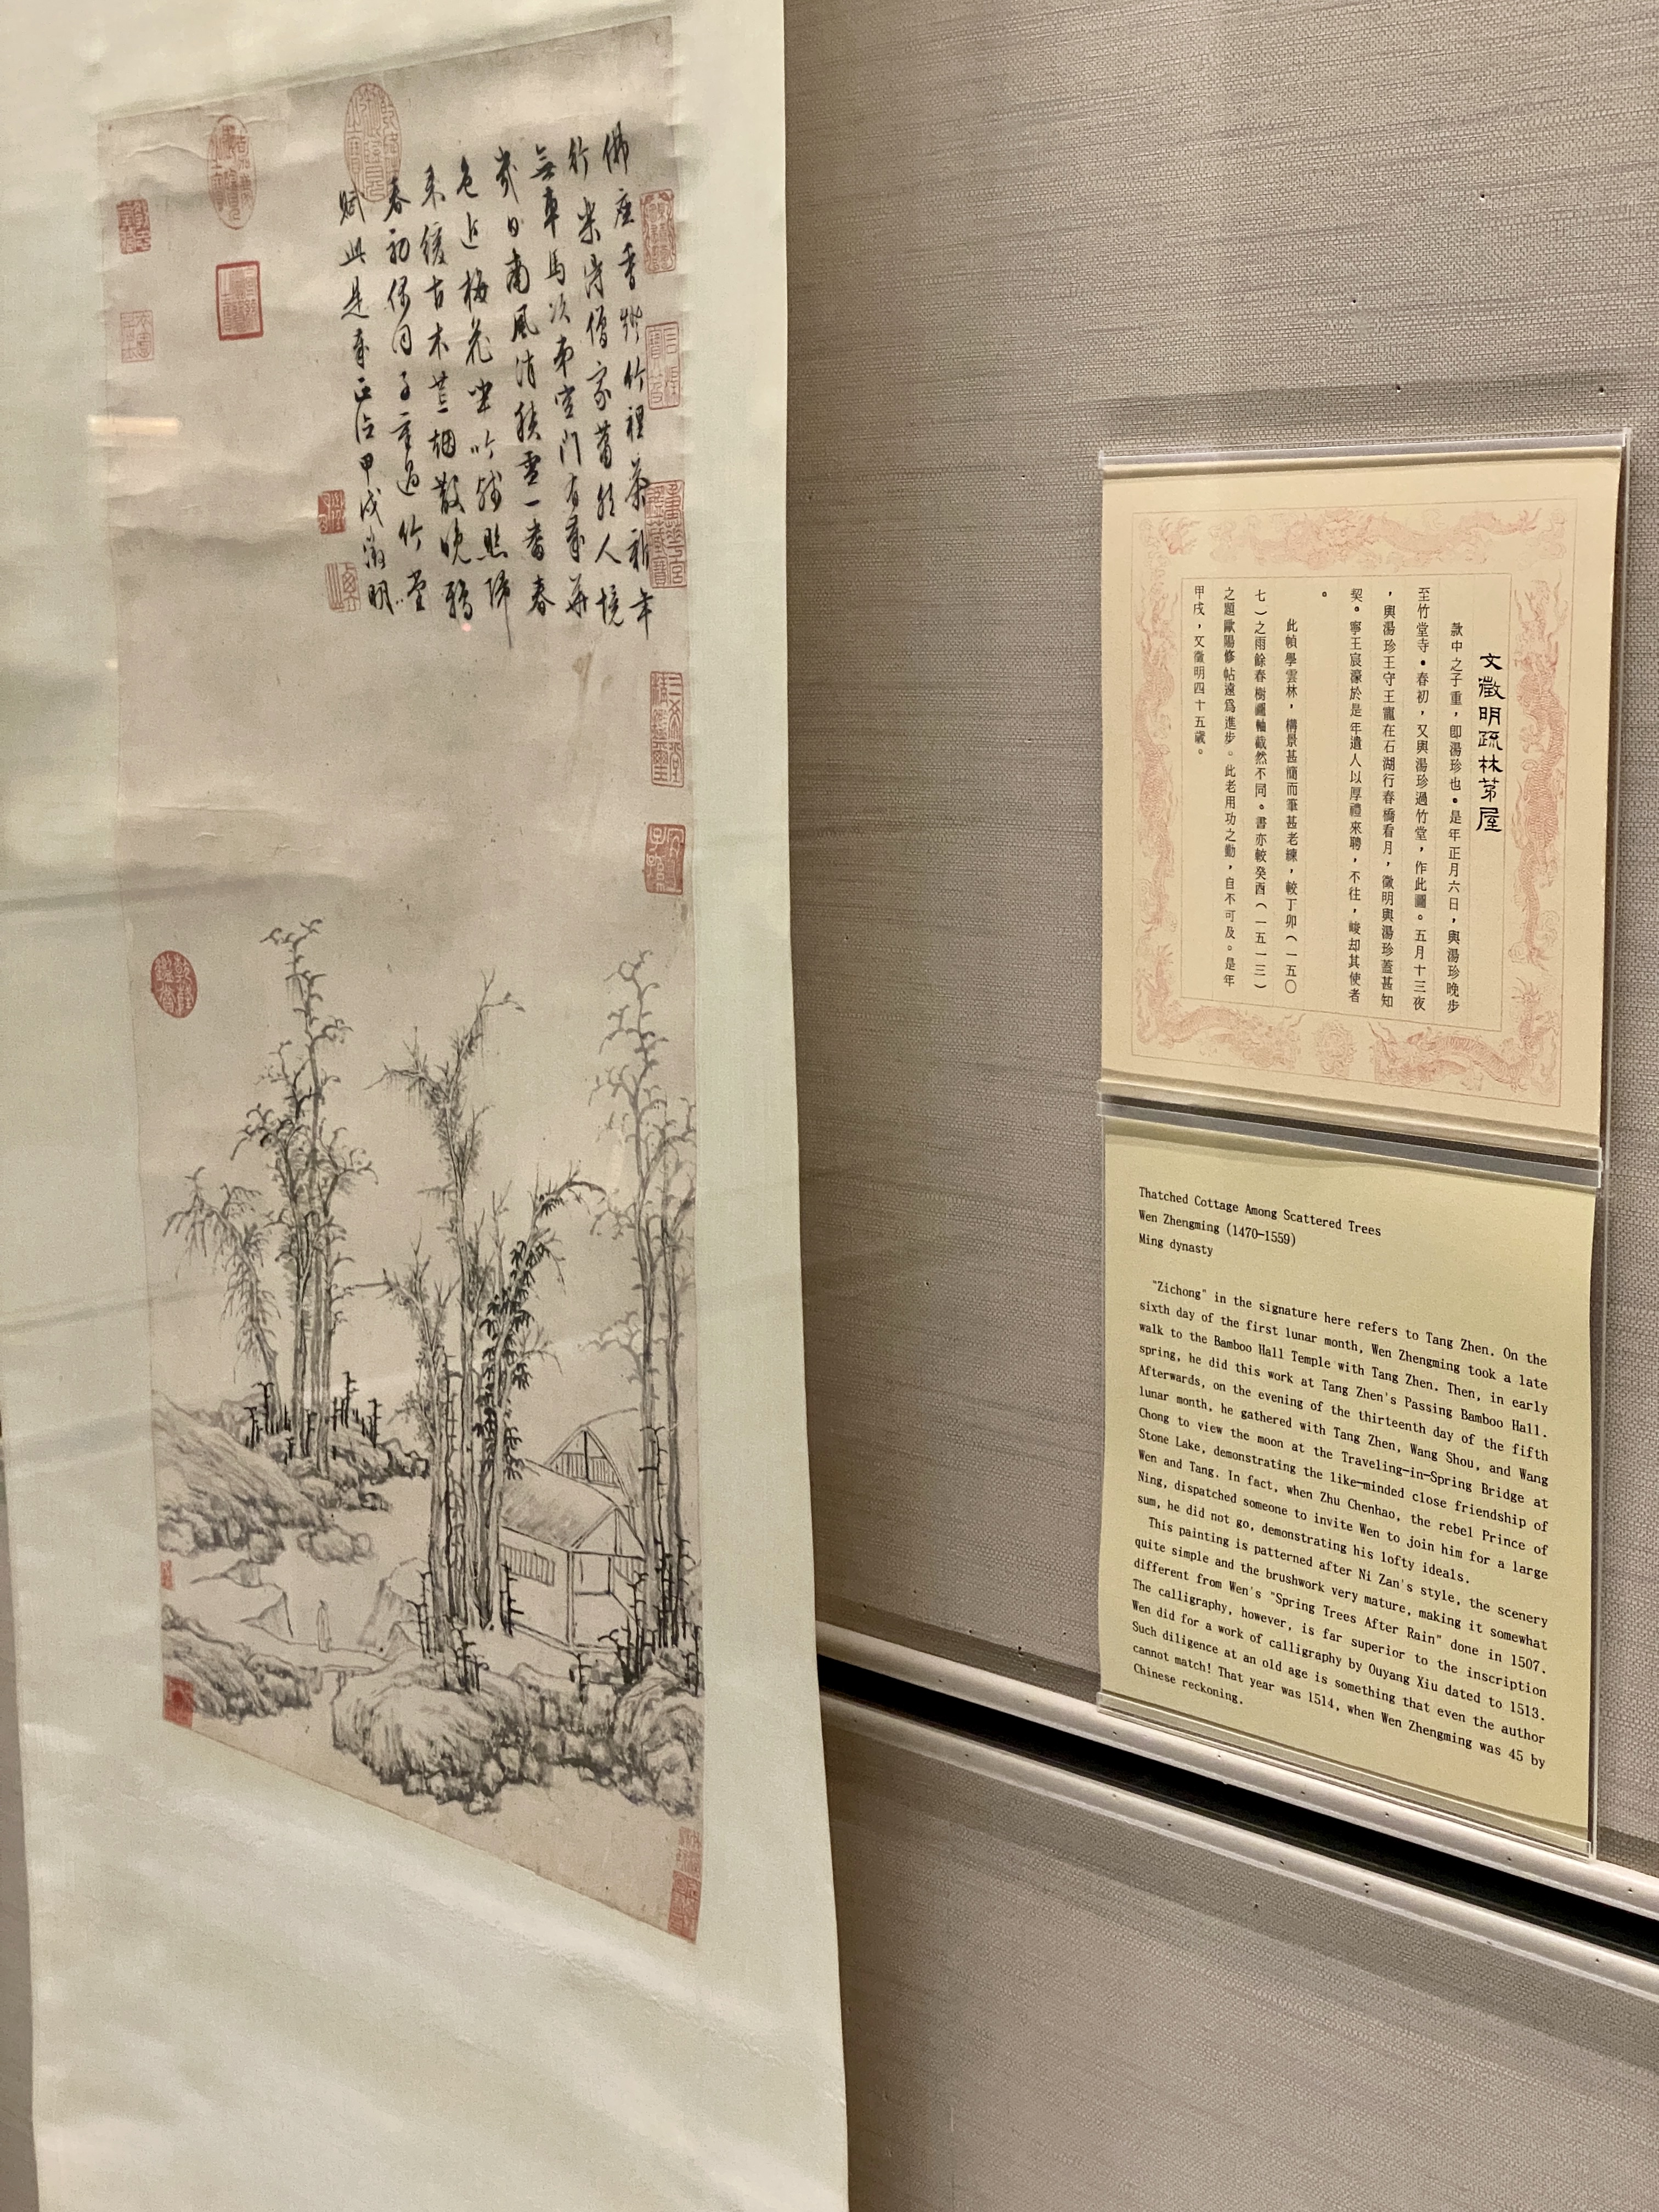 佛座香燈竹裡茶新年
行樂得僧家蕭然人境
無車馬次第空門有歲華
幾日南風消積雪一番春
色近梅花坐吟殘照歸
來緩古木荒煙散晚鴉
春初偶同子重過竹堂
賦此是歲正德甲戌徵明
乾隆御覽之寶
嘉慶御覽之寶
石渠寶笈
重華宮鑑藏寶
三希堂精鑑璽
宜子孫
乾隆鑑賞
文徵明疏林茆屋
款中之子重，即湯珍也。是年正月六日，與湯珍晚步
至竹堂寺。春初，又與湯珍過竹堂，作此圖。五月十三夜
，與湯珍王守王寵在石湖行春橋看月，徵明與湯珍蓋甚知
契。寧王宸濠於是年遣人以厚禮來聘，不往，峻却其使者
。
此幀學雲林，構景甚簡而筆甚老練，較丁卯（一五〇
七）之雨餘春樹圖軸截然不同。書亦較癸酉（一五一三）
之題歐陽修帖遠爲進步。此老用功之勤，自不可及。是年
甲戌，文徵明四十五歲。
Thatched Cottage Among Scattered Trees
Wen Zhengming (1470-1559)
Ming dynasty
"Zichong" in the signature here refers to Tang Zhen. On the
sixth day of the first lunar month, Wen Zhengming took a late
walk to the Bamboo Hall Temple with Tang Zhen. Then, in early
spring, he did this work at Tang Zhen's Passing Bamboo Hall.
Afterwards, on the evening of the thirteenth day of the fifth
lunar month, he gathered with Tang Zhen, Wang Shou, and Wang
Chong to view the moon at the Traveling-in-Spring Bridge at
Stone Lake, demonstrating the like-minded close friendship of
Wen and Tang. In fact, when Zhu Chenhao, the rebel Prince of
Ning, dispatched someone to invite Wen to join him for a large
sum, he did not go, demonstrating his lofty ideals.
This painting is patterned after Ni Zan's style, the scenery
quite simple and the brushwork very mature, making it somewhat
different from Wen's "Spring Trees After Rain" done in 1507.
The calligraphy, however, is far superior to the inscription
Wen did for a work of calligraphy by Ouyang Xiu dated to 1513.
Such diligence at an old age is something that even the author
cannot match! That year was 1514, when Wen Zhengming was 45 by
Chinese reckoning.